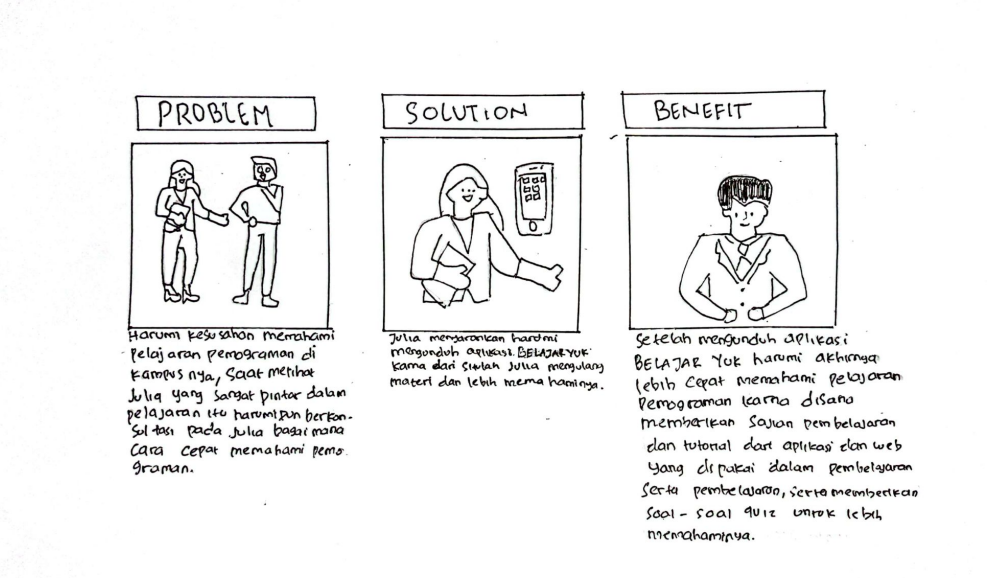 PROBLEM
Harumi kesusahan memahami
pelajaran pemograman di
kampus nya, saat melihat
Julia yang sangat pintar dalam
pelajaran itu harumipun berkon-
sultasi pada Julia bagaimana
cara cepat memahami pemo-
graman.
SOLUTION
Julia menyarankan harumi
mengunduh aplikasi. BELAJAR YUK
karna dari situlah Julia mengulang
materi dan lebih memahaminya.
BENEFIT
Setelah mengunduh aplikasi
BELAJAR YUK harumi akhirnya
lebih cepat memahami pelajaran
pemograman karna disana
memberikan sajian pembelajaran
dan tutorial dari aplikasi dan web
yang dipakai dalam pembelajaran
serta pembelajaran, serta memberikan
soal-soal quiz untuk lebih
memahaminya.